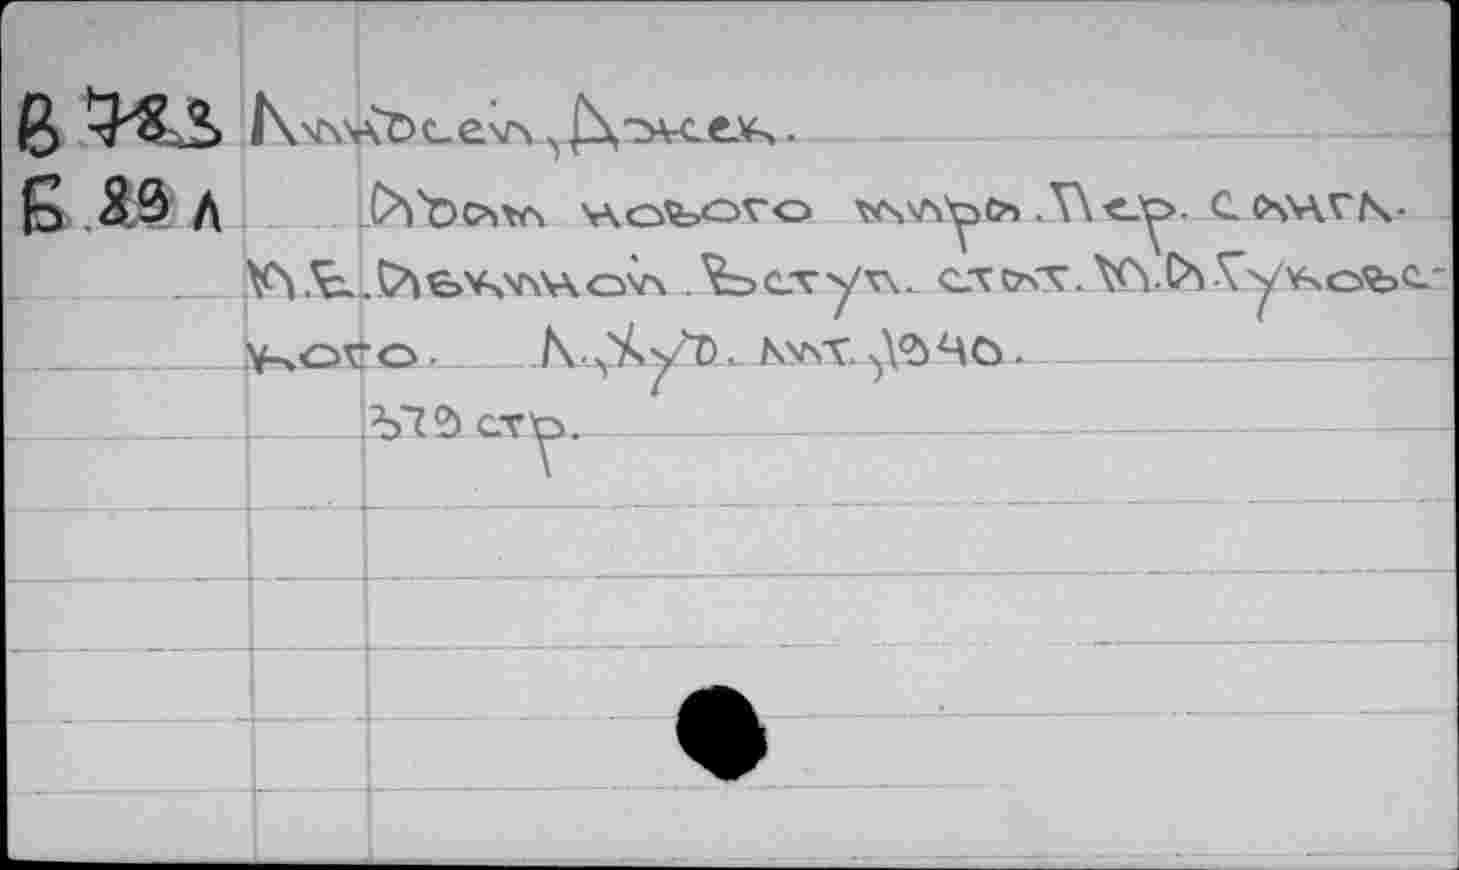 В 782 Линдсей, Джек.
Б.29 л Адам нового мира. Пер. с англ.
И.В. Авкиной. Вступ. стат. И.А. Гуковс-
кого. Л., Худ. лит., 1940.
372 стр.